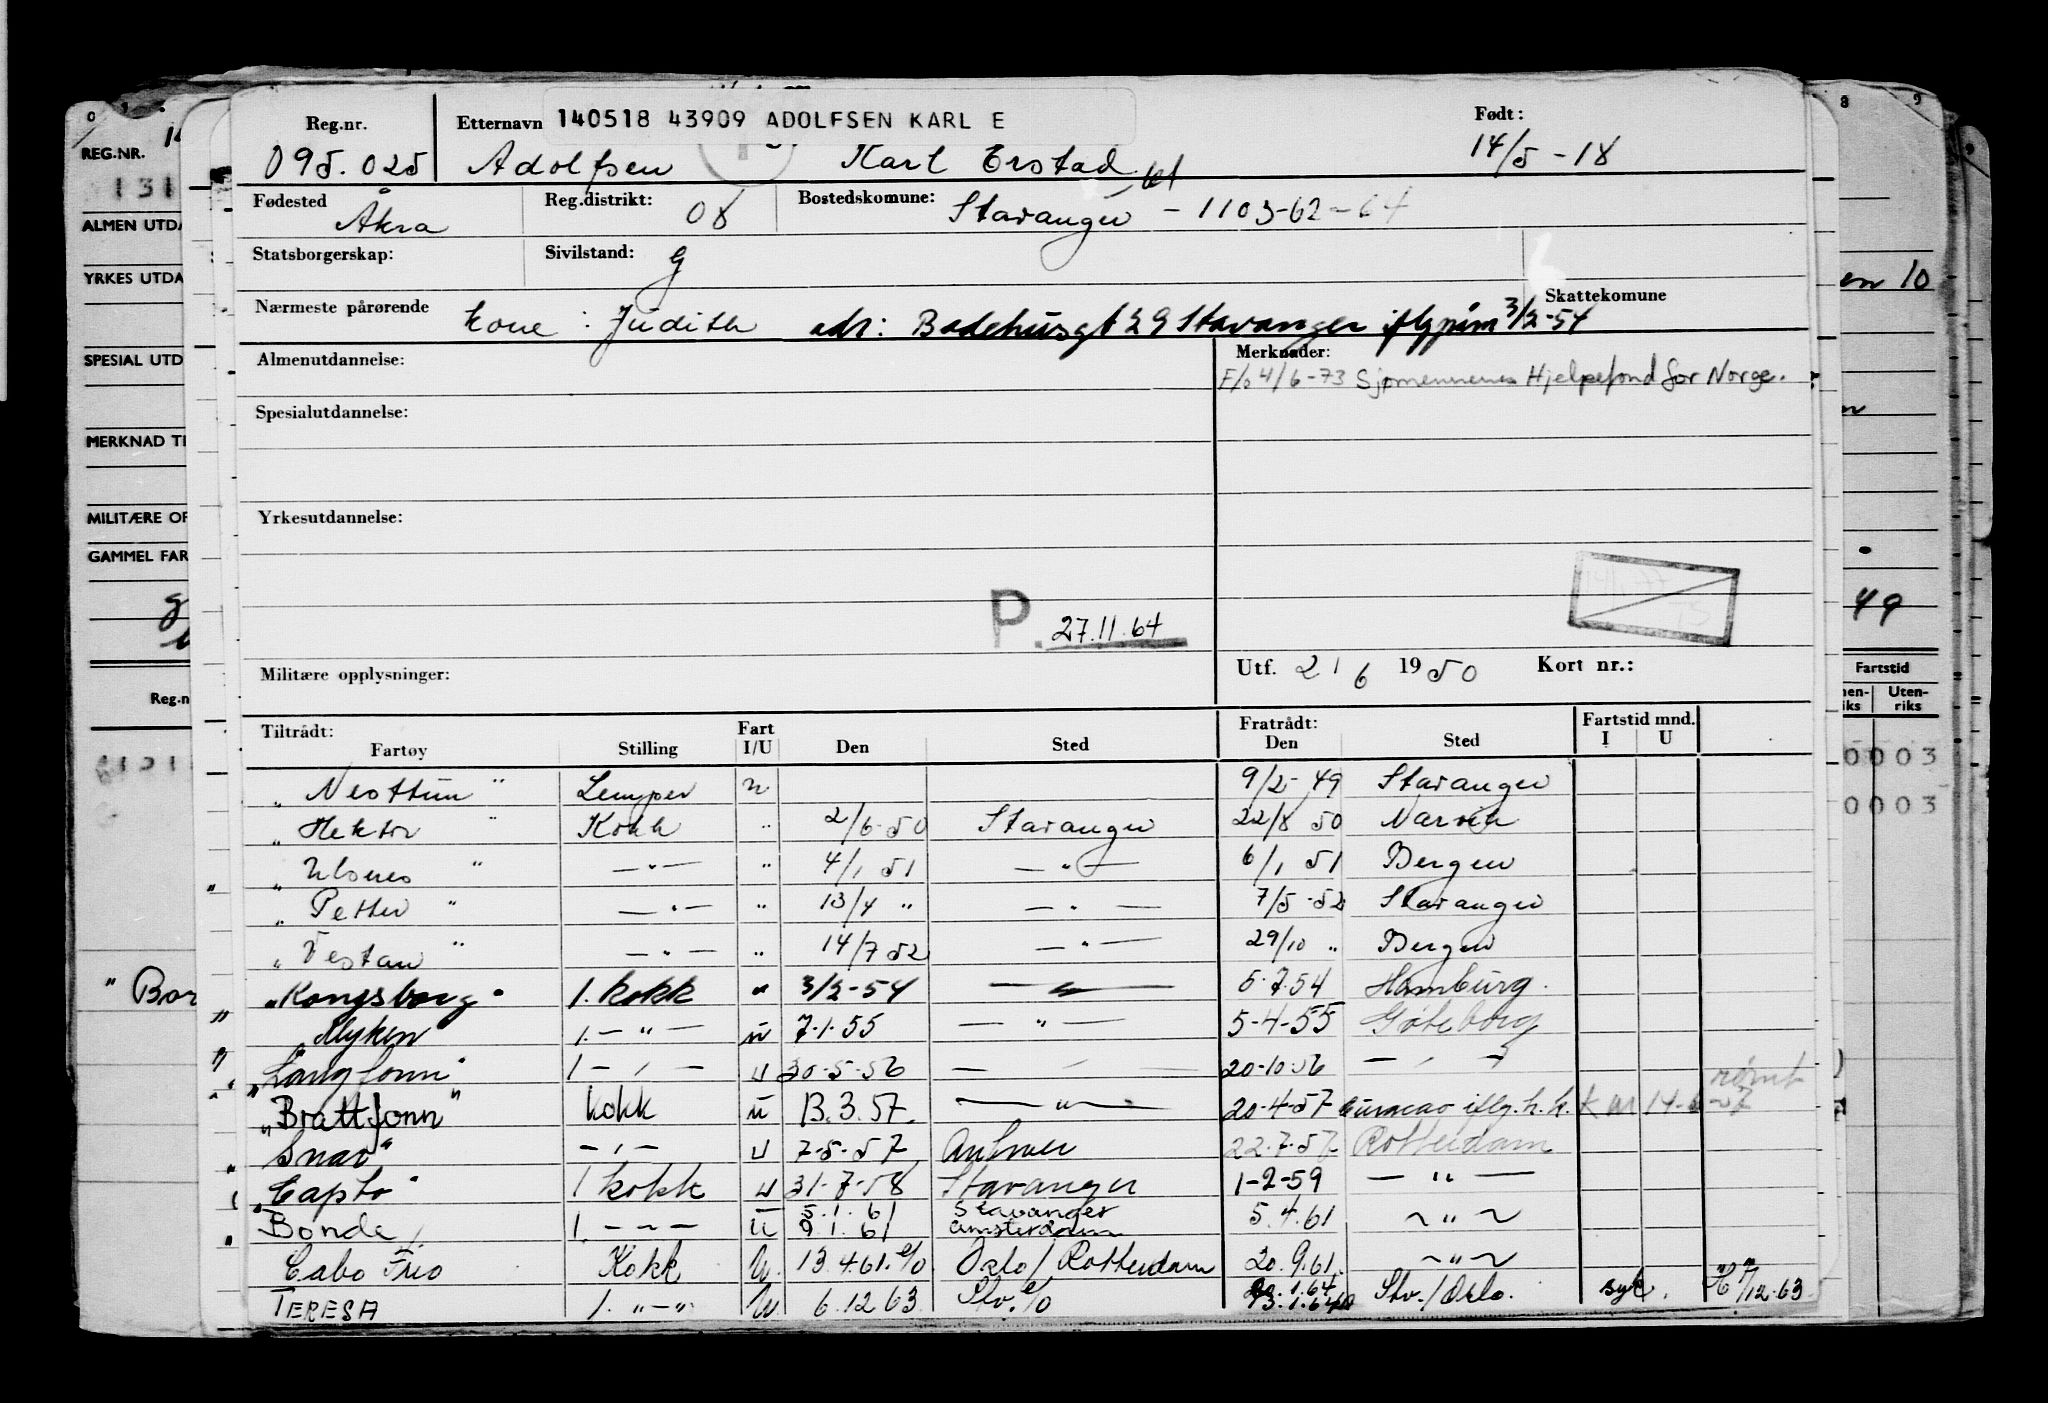 Reg.nr. Etternavn 140518 43909 ADOLFSEN KARL E Født:
095.025 Adolfsen Karl Erstad 14/5 -18
Fødested Åkra Reg.distrikt: 08 Bostedskomune: Stavanger - 1103-62-64
Statsborgerskap: Sivilstand: G
Nærmeste pårørende kone : Judith adr: Badehusgt 29 Stavanger iflg påm 3/2-54 Skattekomune
Almenutdannelse: Merknader:
F/o 4/6-73 Sjømennenes Hjelpefond for Norge.
Spesialutdannelse:
Yrkesutdannelse:
P. 27.11.64
Militære opplysninger: Utf. 2/6 1950 Kort nr.:
Tiltrådt: Fart Fratrådt: Fartstid mnd.
Fartøy Stilling I/U Den Sted Den Sted I U
„ Nesttun " Lemper u 9/2-49 Stavanger
„ Hektor " Kokk " 2/6-50 Stavanger 22/8 50 Narvik
„ Ulsnes " — " — " 4/1 51 — " — 6/1 51 Bergen
„ Petter " — " — " 13/4 " — " — 7/5-52 Stavanger
„ Vestan " — " — " 14/7 52 — " — 29/10 " Bergen
"Kongsborg" 1. kokk " 3/2-54 — " — 5.7.54 Hamburg.
Myken 1. — " — u 7.1.55 — " — 5-4-55 Göteborg
"Langfonn" 1 — " — u 30-5-56 — " — 20-10-56 — " —
"Brattfonn" kokk u 13.3.57. — " — 20-4-57 Curacao iflg. h.k. rømt
Snar" — " — u 7-5-57 Antwer 22.7.57 Rotterdam
"Capto" 1 kokk u 31-7-58 Stavanger 1-2-59 — " —
Bonde 1. — " — u 5.1.61 Stavanger 5.4.61 ~ " ~
9.1.61 Amsterdam
Cabo Frio Kokk U. 13.4.61. e/o Oslo/Rotterdam 20.9.61. ~ " ~
TERESA 1. " — " U. 6.12 63. Stv. e/o 13.1.64 Stv./Oslo. syk. /12.63
REG.NR.
131
ALMEN UTDA
YRKES UTDA
SPESIAL UTD
MERKNAD TI
MILITÆRE OP
GAMMEL FAR
Reg.n
" Bor
en 10
49
Fartstid
nen-
iks
Uten-
riks
0003
0003